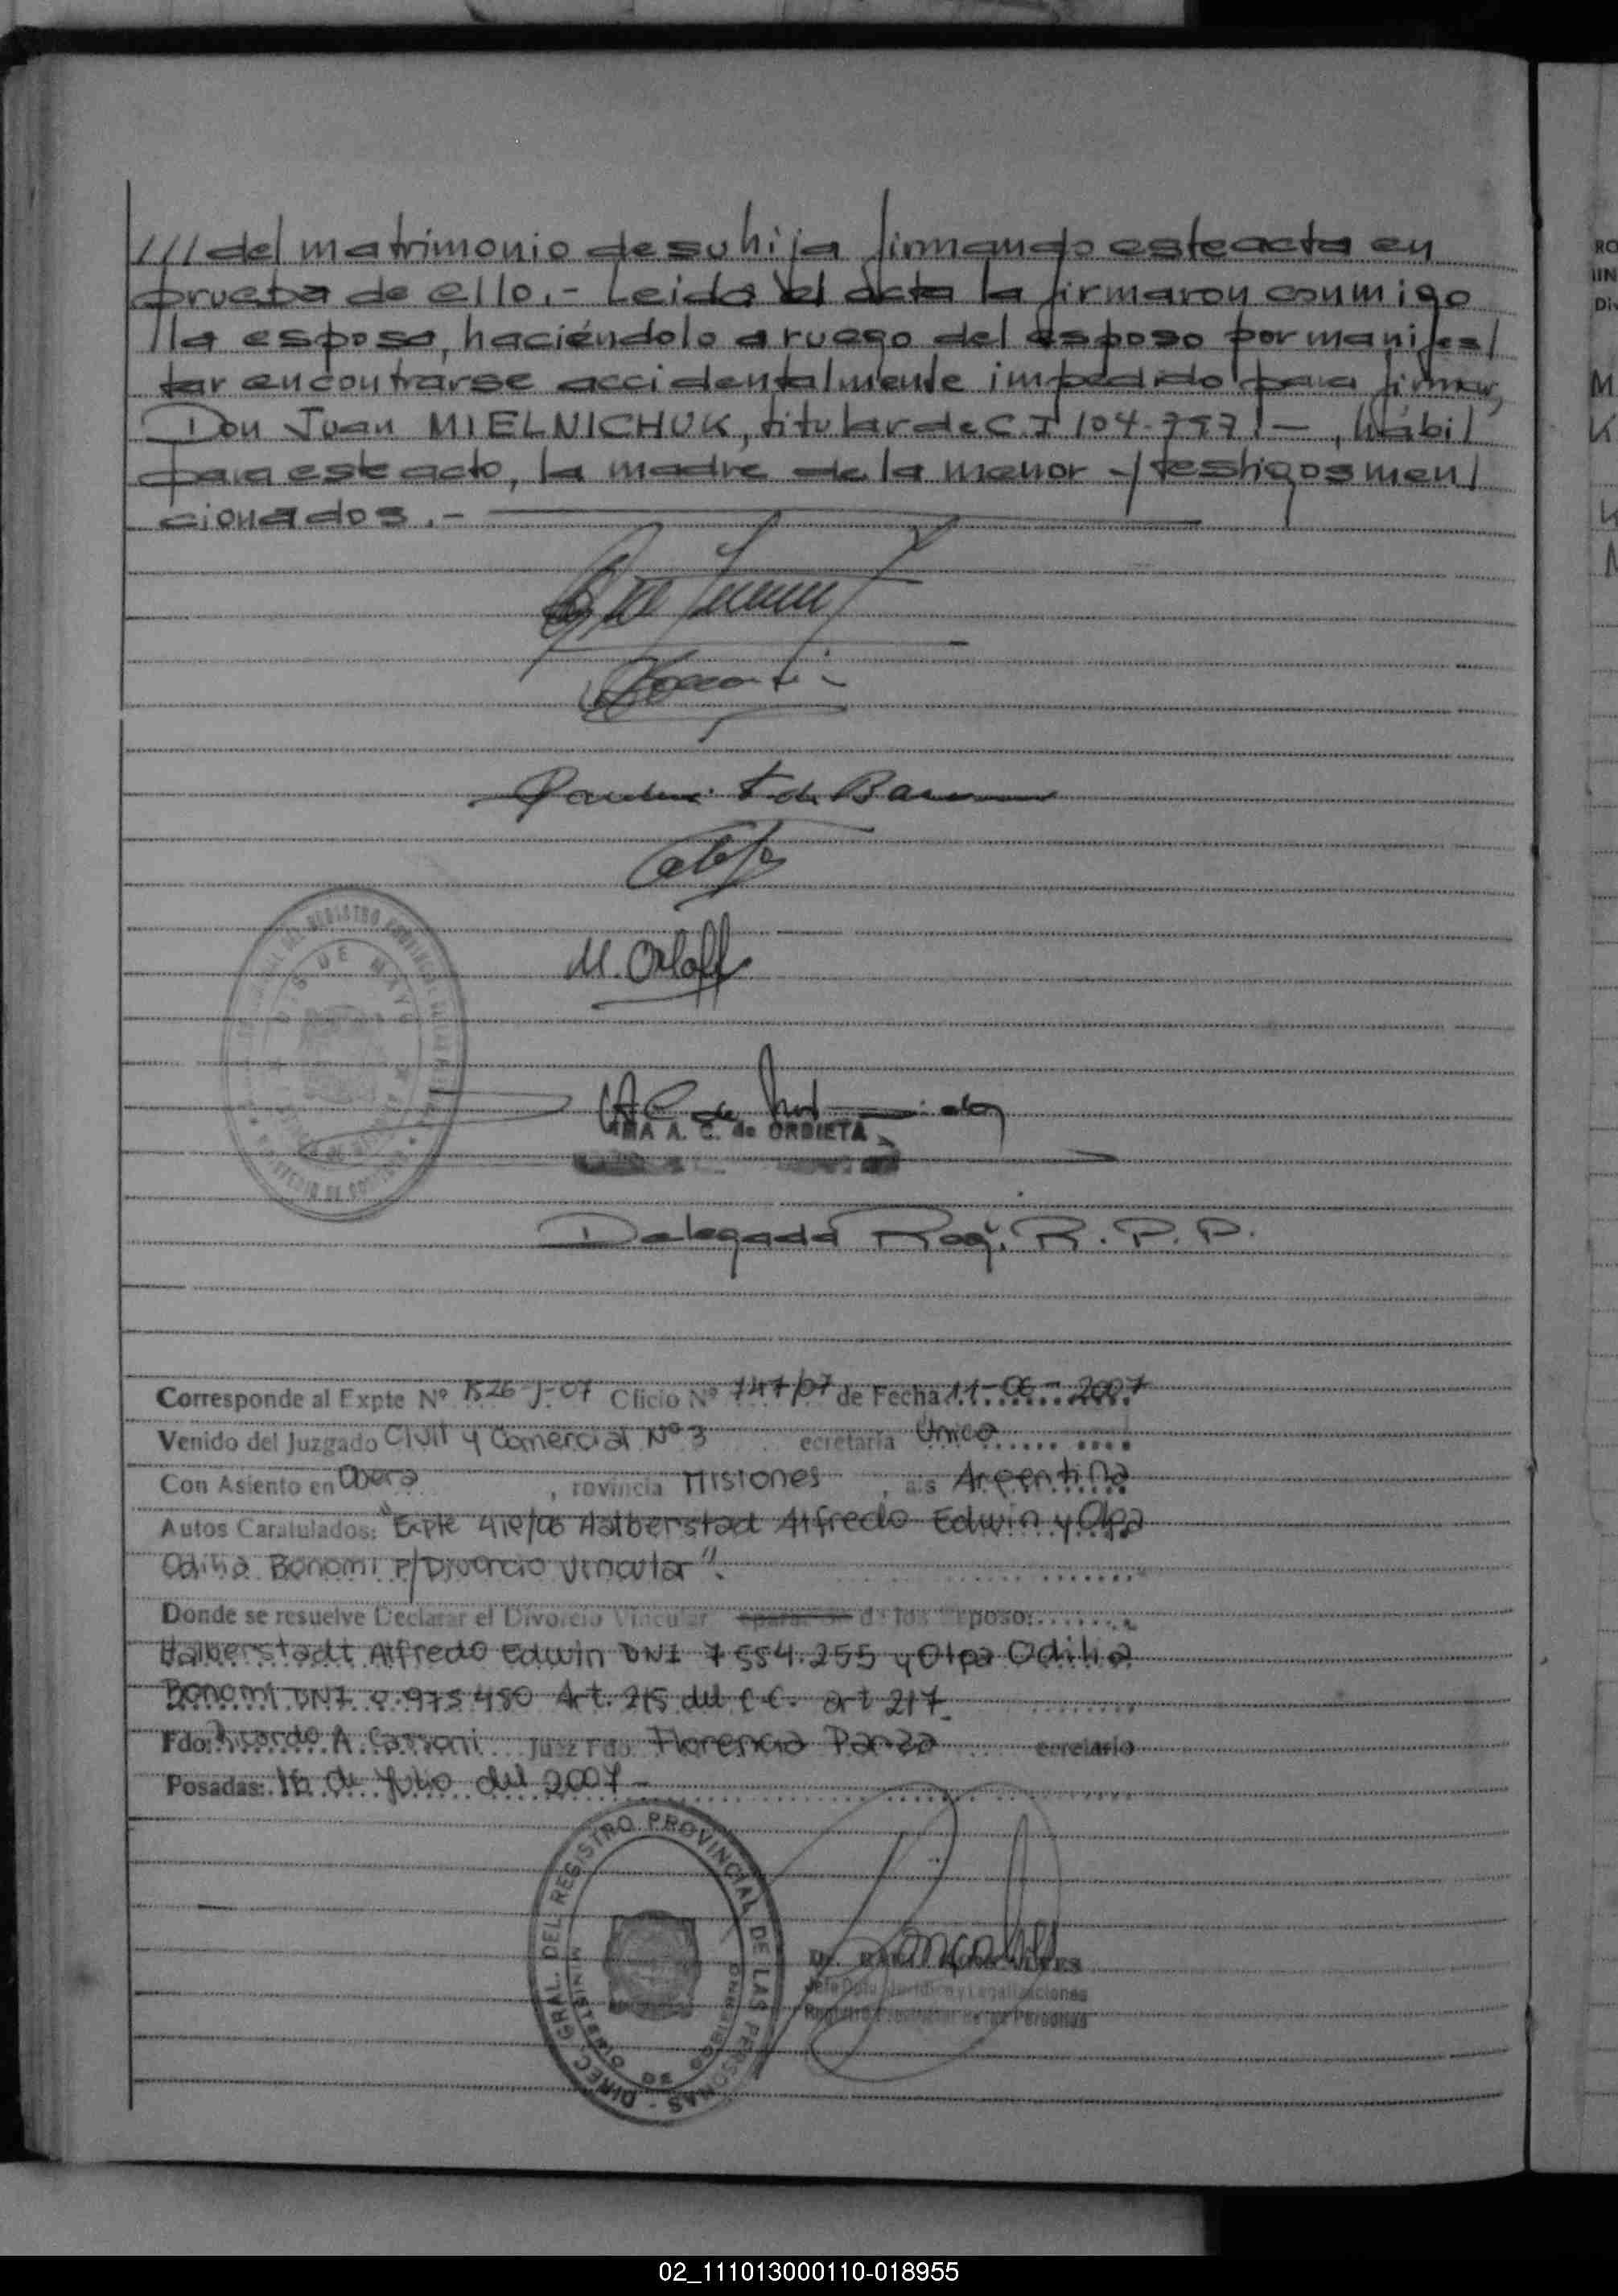 ///del matrimonio de su hija firmando este acta en
prueba de ello.- Leida el acta la firmaron conmigo
la esposa, haciéndolo a ruego del esposo por manifes/
tar encontrarse accidentalmente impedido para firmar,
Don Juan MIELNICHUK, titular de C I 104.797!-, hábil
para este acto, la madre de la menor y testigos men/
cionados.-
M. Orloff
A. C. de ORBIETA
Delegada Reg. R. P. P.
Corresponde al Expte Nº 1526-J-07 Oficio Nº 747/07 de Fecha 11-06-2007
Venido del Juzgado Civil y Comercial Nº 3 ecretaria Único
Con Asiento en Obera, rovincia Misiones, a:s Argentina
Autos Caratulados: "Expte 419/06 Halberstadt Alfredo Edwin y Olga
Odilia Bonomi P/Divorcio Vincular".
Donde se resuelve Declarar el Divorcio Vincular de los esposo:
Halberstadt Alfredo Edwin DNI 7 554.255 y Olga Odilia
Bonomi DNI 0.975 450 Art. 215 del C.C. art 217
Fdo: Ricardo A. Cassoni Juez Fdo Florencia Panza ecretario
Posadas: 16 de Julio del 2007-
DIREC. GRAL. DEL REGISTRO PROVINCIAL DE LAS PERSONAS
MINISTERIO DE GOBIERNO
Jefe Dpto. Jurídico y Legalizaciones
Registro Provincial de las Personas
02_111013000110-018955